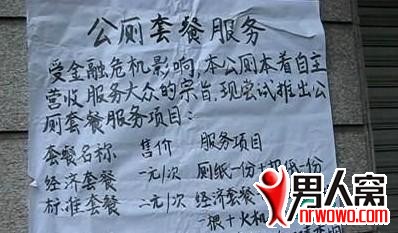 公厕套餐服务
受金融危机影响,本公厕本着自主
营收服务大众的宗旨,现尝试推出公
厕套餐服务项目:
套餐名称 售价 服务项目
经济套餐 一元/次 厕纸一份+报纸一份
标准套餐 二元/次 经济套餐
一根+火机
男人窝
nrwowo.com